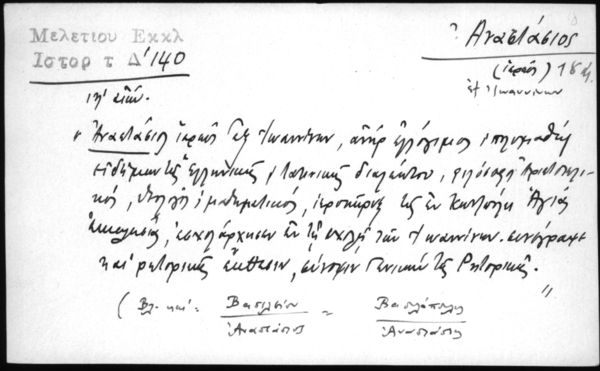 Μελετίου Εκκλ
Ιστορ τ Δ' 140
Ἀναστάσιος
(ἱερεύς) 18
ἐξ Ἰωαννίνων
"Ἀναστάσιος ἱερεύς ἐξ Ἰωαννίνων, ἀνήρ ἐλλόγιμος, πολυμαθής
εἰδήμων τῆς ἑλληνικῆς, λατινικῆς διαλέκτου, φιλόσοφος Ἀριστοτελι-
κός, θεολόγος, μαθηματικός, ἱεροκήρυξ τῆς ἐν Κων)πόλει Ἁγίας
Ἐκκλησίας, ἐσχολάρχησεν ἐν τῇ σχολῇ τῶν Ἰωαννίνων. συνέγραψε
καί ρητορικῆς ἔκθεσιν, σύνοψιν Γενικήν τῆς Ρητορικῆς."
(Βλ. καί: Βασιλείου Ἀναστάσιος = Βασιλόπουλος Ἀναστάσιος